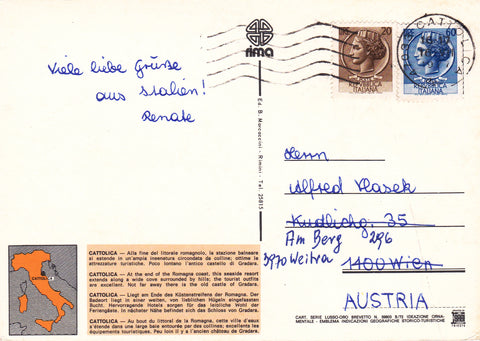 rima
LIRE 20
REPUBBLICA
ITALIANA
LIRE 60
REPUBBLICA
ITALIANA
CATTOLICA
Viele liebe Grüße
aus Italien!
Renate
Ed. B. Marcaccini - Rimini - Tel. 25815
Herrn
Alfred Hasek
Kudlichg. 35
Am Berg 296
3970 Weitra
1100 Wien
AUSTRIA
CATTOLICA
CATTOLICA — Alla fine del litorale romagnolo, la stazione balneare
si estende in un'ampia insenatura circondata da colline; ottima la
attrezzatura turistica. Poco lontano l'antico castello di Gradara.
CATTOLICA — At the end of the Romagna coast, this seaside resort
extends along a wide cove surrounded by hills; the tourist outfits
are excellent. Not far away there is the old castle of Gradara.
CATTOLICA — Liegt am Ende des Küstenstreifens der Romagna. Der
Badeort liegt in einer weiten, von lieblichen Hügeln eingefassten
Bucht. Hervorragende Hotels sorgen für das leibliche Wohl der
Feriengäste. In nächster Nähe befindet sich das Schloss von Gradara.
CATTOLICA — Au bout du littoral de la Romagna, cette ville d'eaux
s'étende dans une large baie entourée par des collines; excellents les
équipements touristiques. Peu loin il y a l'ancien château de Gradara.
CART. SERIE LUSSO-ORO BREVETTO N. 39803 B/75 IDEAZIONE ORNA-
MENTALE - EMBLEMA INDICAZIONI GEOGRAFICHE STORICO-TURISTICHE